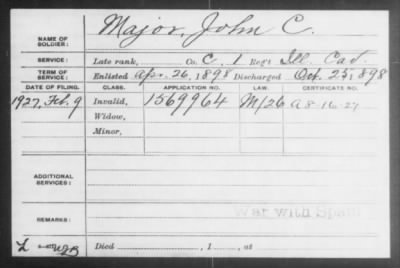 NAME OF SOLDIER: Major, John C.
SERVICE: Late rank, Co. C, 1 Reg't Ill. Cav.
TERM OF SERVICE: Enlisted Apr. 26, 1898 Discharged Oct. 25, 1898
DATE OF FILING. CLASS. APPLICATION NO. LAW. CERTIFICATE NO.
1927, Feb. 9 Invalid, 1569964 M/26 A 8-16-27
Widow,
Minor,
ADDITIONAL SERVICES:
War with Spain
REMARKS:
L
Died , 1 , at